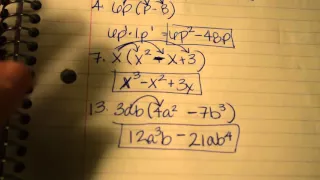 4. 6p(p-8)
6p·1p¹ = 6p²-48p
7. x(x²-x+3)
x³-x²+3x
13. 3ab(4a²-7b³)
12a³b-21ab⁴